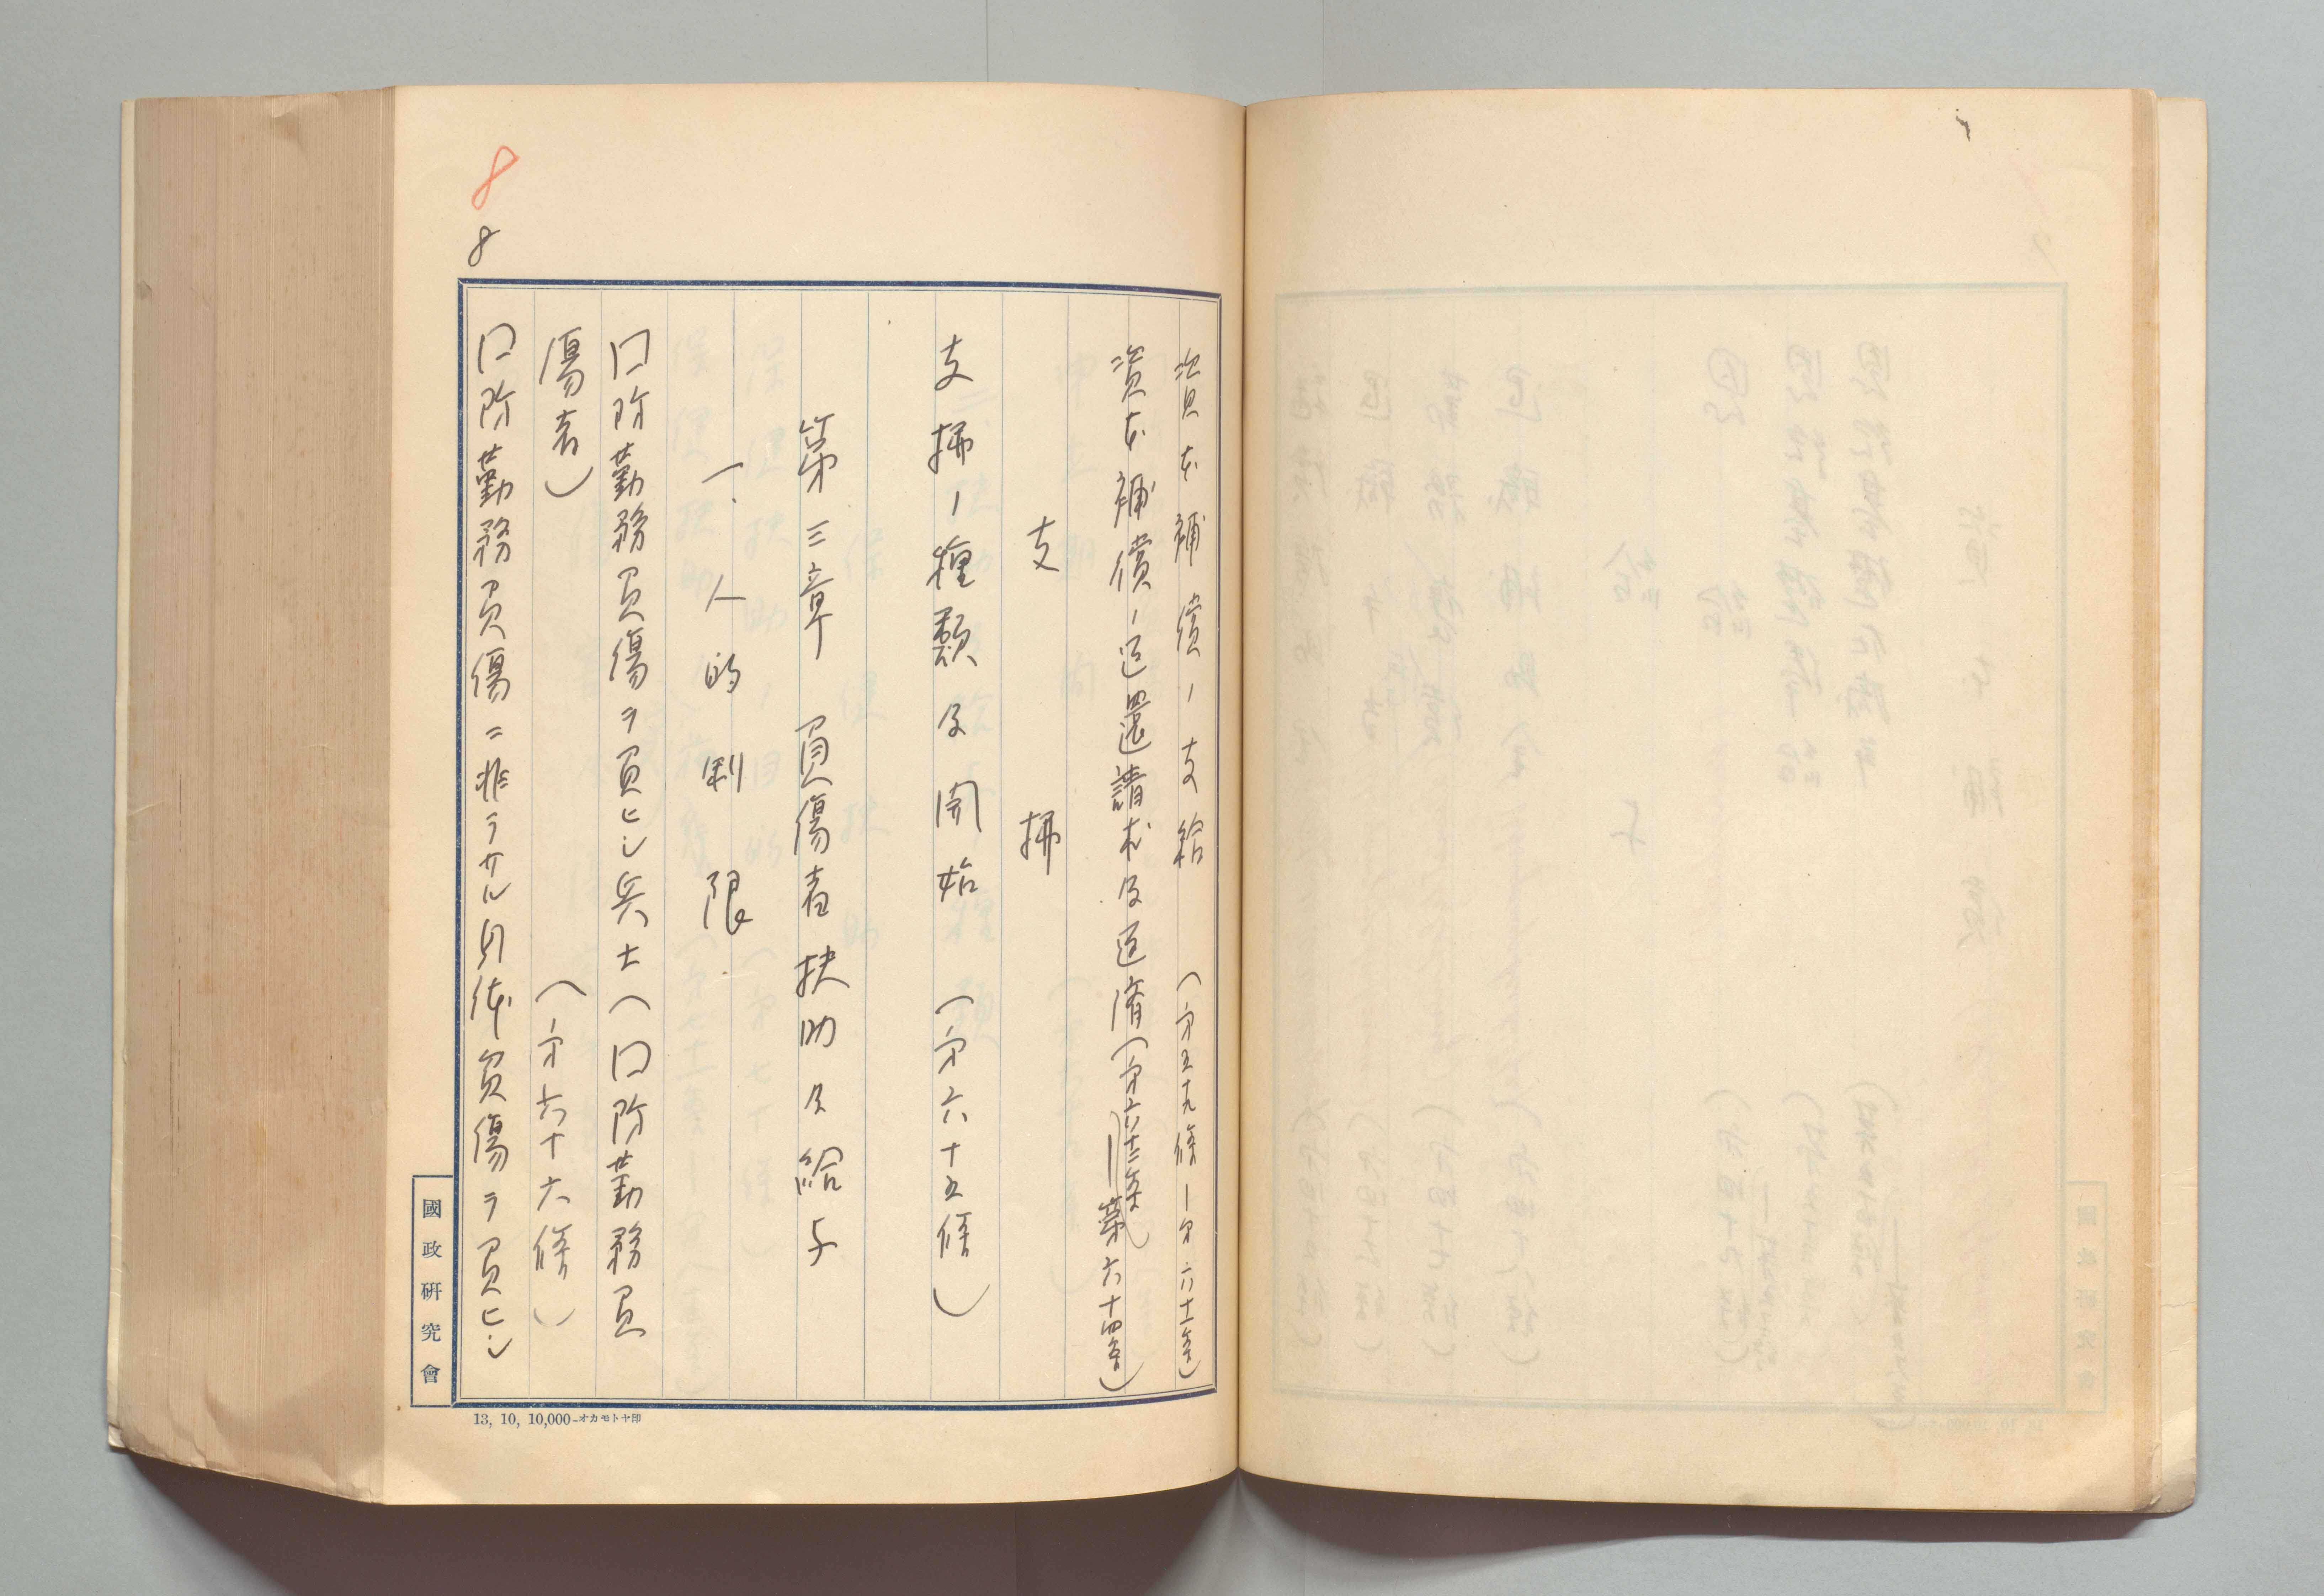 8
8
資本補償ノ支給 (第五九條ー第六十二條)
資本補償ノ返還請求及返済(第六十三條ー第六十四條)
支拂
支拂ノ種類及開始 (第六十五條)
第三章 負傷者扶助及給与
一.人的制限
口防勤務負傷ヲ負ヒシ兵士(口防勤務負
傷者) (第六十六條)
口防勤務負傷ニ非ラサル身体負傷ヲ負ヒシ
國政研究會
13, 10, 10,000-オカモトヤ印